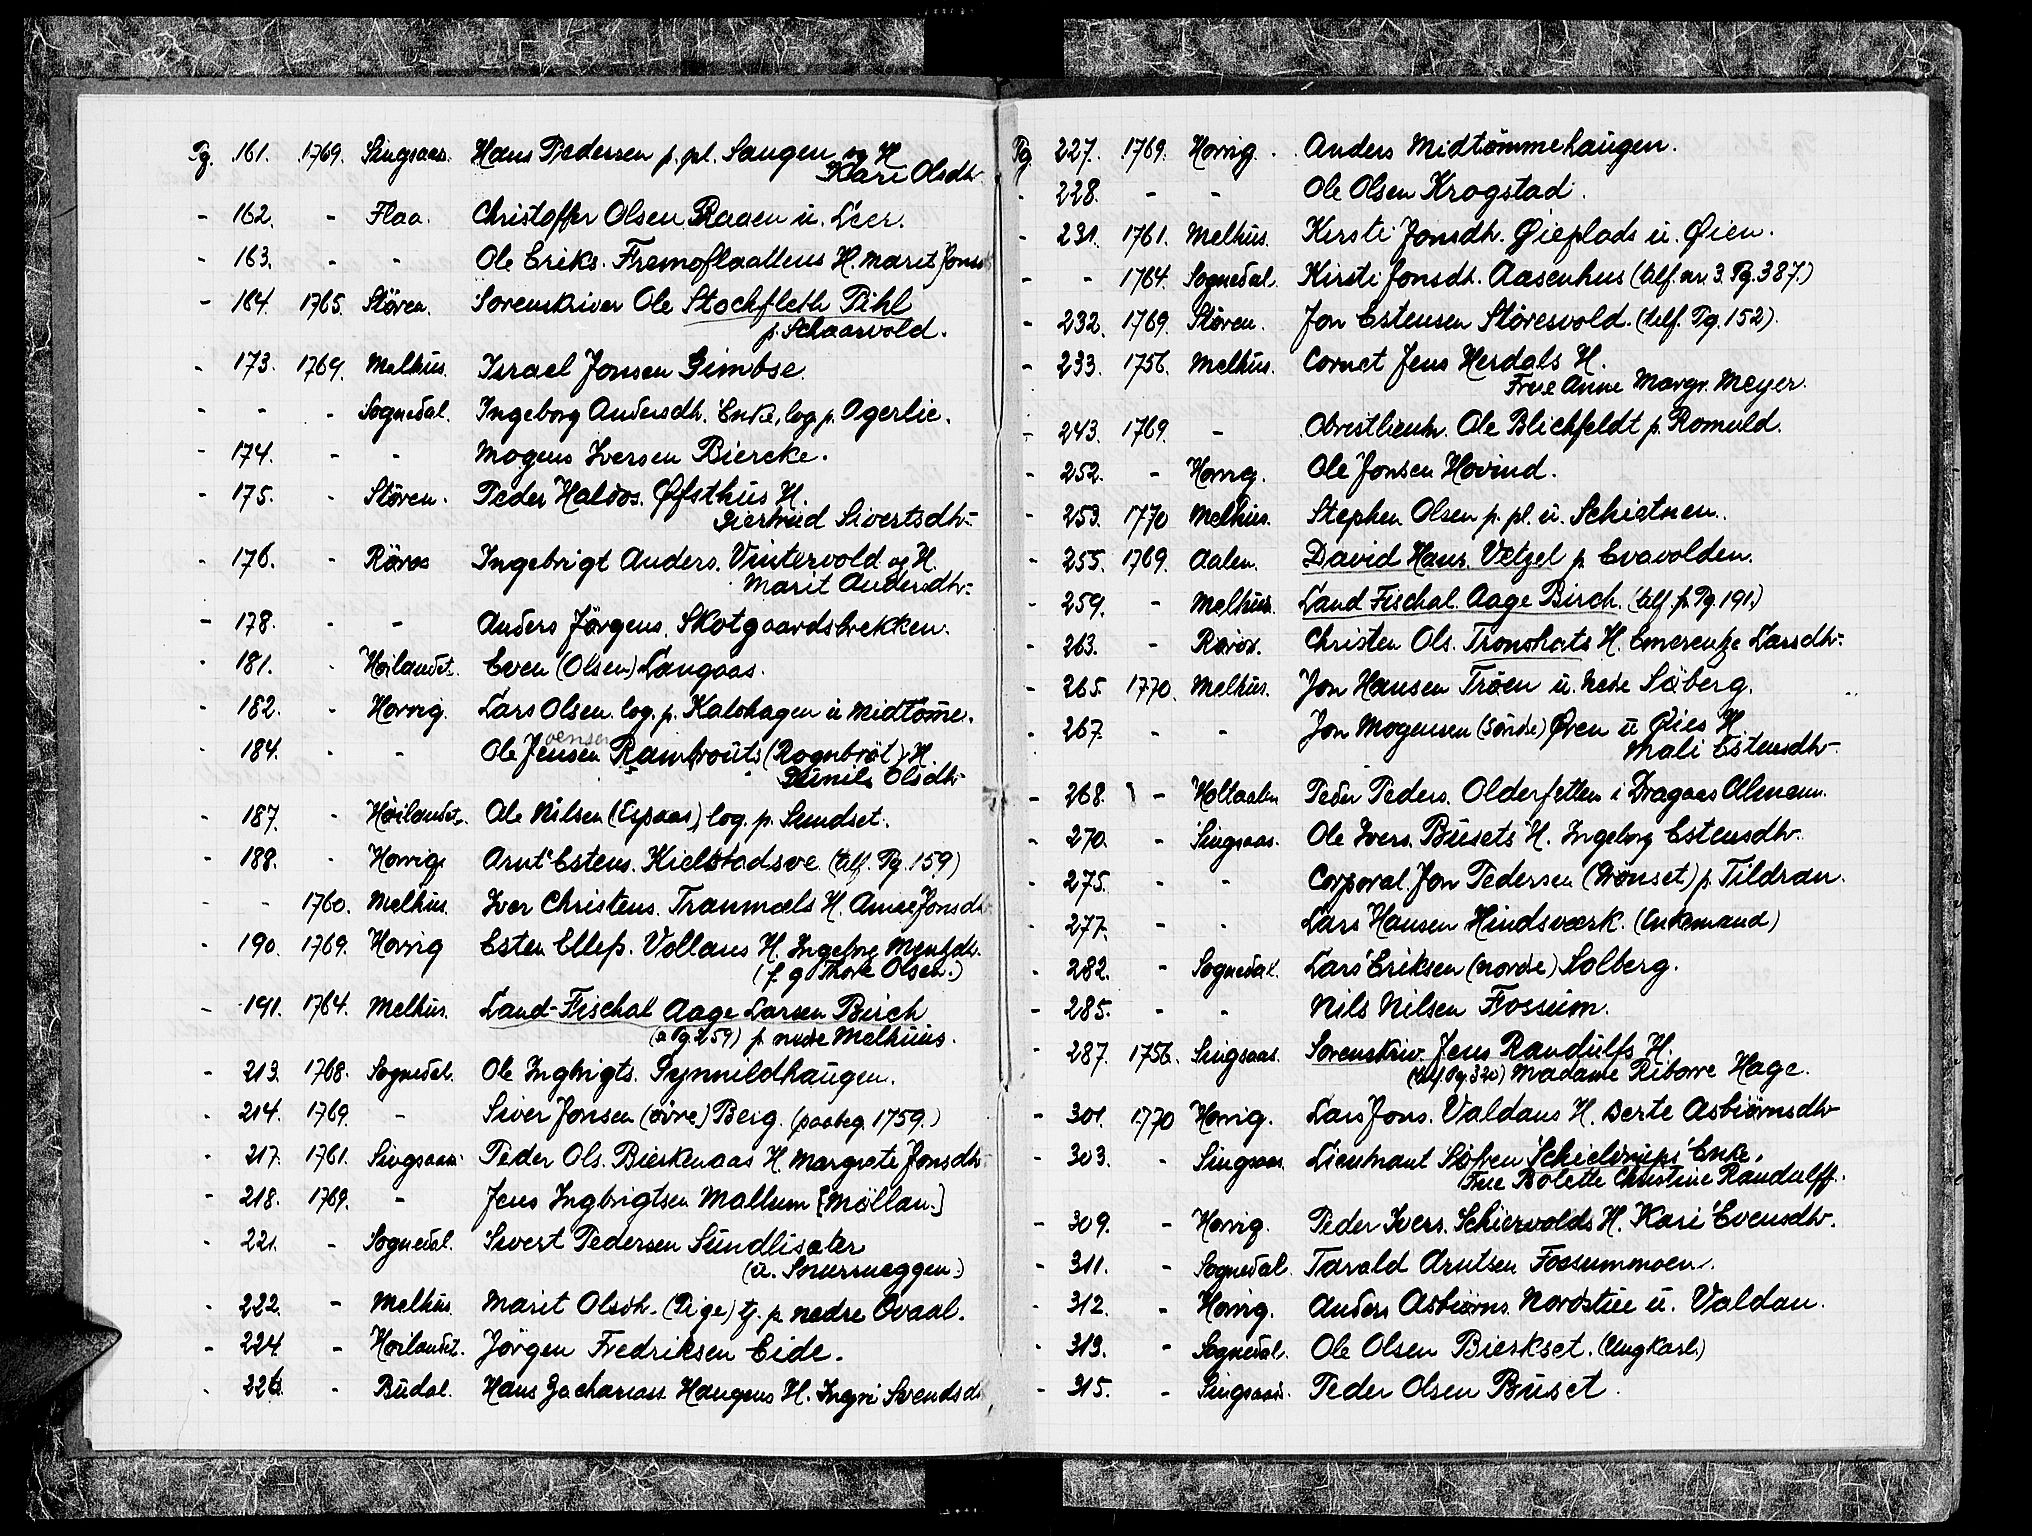 Pg. 161. 1769. Singsaas. Hans Pedersen p. pl. Haugen og H.
Kari Olsdtr.
- 162. - Flaa. Christoffer Olsen Raaen u. Leer.
- 163. - - Ole Eriks. Fremoflaattens H. Marit Jonsd
- 164. 1765. Støren. Sorenskriver Ole Stockfleth Pihl
p. Schaarvold.
- 173. 1769. Melhus. Israel Jonsen Gimbse.
- - - Sognedal. Ingeborg Andersdh. Enke, log. p. Agerlie.
- 174. - - Mogens Iversen Biercke.
- 175. - Støren. Peder Haldos. Øfsthus H.
Giertrud Sivertsdtr.
- 176. - Röros Ingebrigt Anders. Vintervold og H.
Marit Andersdtr.
- 178. - - Anders Jørgens. Skotgaardsbrekken.
- 181. - Høilandet. Even (Olsen) Langaas.
- 182. - Horrig. Lars Olsen. log. p. Kalshagen u Midtømme.
- 184. - - Ole Jensen Rambrouts (Rognbröt) H.
oensen
Gunild Olsdtr
- 187. - Høilandet. Ole Nilsen (Espaas) log. p. Sundset.
- 188. - Horrig Arnt Estens. Kielstadsve. (tilf. Pg. 159)
- - 1760. Melhus. Iver Christens. Tranmæls H. Anne Jonsdtr
- 190. 1769. Horrig Esten Ellefs. Vollans H. Ingeborg Mentzdtr.
(f. g. Thore Olsen.)
- 191. 1764. Melhus. Land-Fischal Aage Larsen Birch
(a Pg. 259) p nedre Melhuus.
- 213. 1768. Sognedal. Ole Ingbrigts. Synnildhaugen.
- 214. 1769. - Siver Jonsen (övre) Berg. (paabeg. 1759.)
- 217. 1761. Singsaas. Peder Ols. Bierkenaas H. Margrete Jonsdtr.
- 218. 1769. - Jens Ingbrigtsen Mallum [Möllan.]
- 221. - Sognedal. Sivert Pedersen Sundlisæter
(u. Snurrueggen.)
- 222. - Melhus. Marit Olsdh. (Pige) tj. p nedre Qvaal.
- 224 - Høilandet. Jörgen Fredriksen Eide.
- 226. - Budal. Hans Zacharias. Haugens H. Ingri Svendsd
Pg 227. 1769. Horrig. Anders Midtømmehaugen.
- 228. - - Ole Olsen Krogstad.
- 231. 1761. Melhus. Kirsti Jonsdh. Øieplads u. Øien.
- - 1764. Sognedal. Kirsti Jonsdt. Aasenhus (tilf. nr. 3. Pg. 387.)
- 232. 1769. Støren. Jon Estensen Störesvold. (tilf. Pg. 152).
- 233. 1756. Melhus. Cornet Jens Herdals H.
Frue Anne Margr. Meyer.
- 243. 1769. - Obristlieutn. Ole Blichfeldt p. Romuld.
- 252. - Horrig. Ole Jonsen Hovind.
- 253. 1770 Melhus. Stephen Olsen p. pl. u. Schietnen.
- 255. 1769. Aalen. David Hans. Vetzel p Evavolden.
- 259. - Melhus. Land Fischal Aage Birch. (tilf. fr. Pg. 191.)
- 263. - Röros. Christen Ols. Tronshats H. Emerentze Larsdtr.
- 265. 1770. Melhus. Jon Hansen Tröen u. Nedre Söberg.
- 267. - - Jon Mogensen (Söndre) Øren u Øies H
Mali Estensdtr.
- 268. - Holtaalen Peder Peders. Olderfetten i Dragaas Almenn.
- 270. - Singsaas. Ole Ivers. Busets H. Ingeborg Estensdtr.
- 275. - - Corporal. Jon Pedersen (Brönset) p. Tildran.
- 277. - - Lars Hansen Hindsværk. (Enkemand)
- 282. - Sognedal. Lars Eriksen (nordre) Solberg.
- 285. - - Nils Nilsen Fossum.
- 287. 1756. Singsaas. Sorenskriv. Jens Randulfs H.
(tilf. Pg. 320) Madame Riborre Hage.
- 301. 1770 Horrig. Lars Jons. Valdaus H. Berte Asbiörnsdtr
- 303. - Singsaas Lieutnant Søfren Schielderups Enke,
Frue Bolette Christine Randulff.
- 309. - Horrig. Peder Ivers. Schiervolds H. Kari Evensdtr.
- 311. - Sognedal. Tarald Arntsen Fossummoen.
- 312. - Horrig. Anders Asbiörns. Nordstue u. Valdau.
- 313. - Sognedal. Ole Olsen Bierkset. (Ungkarl.)
- 315. - Singsaas. Peder Olsen Buset.